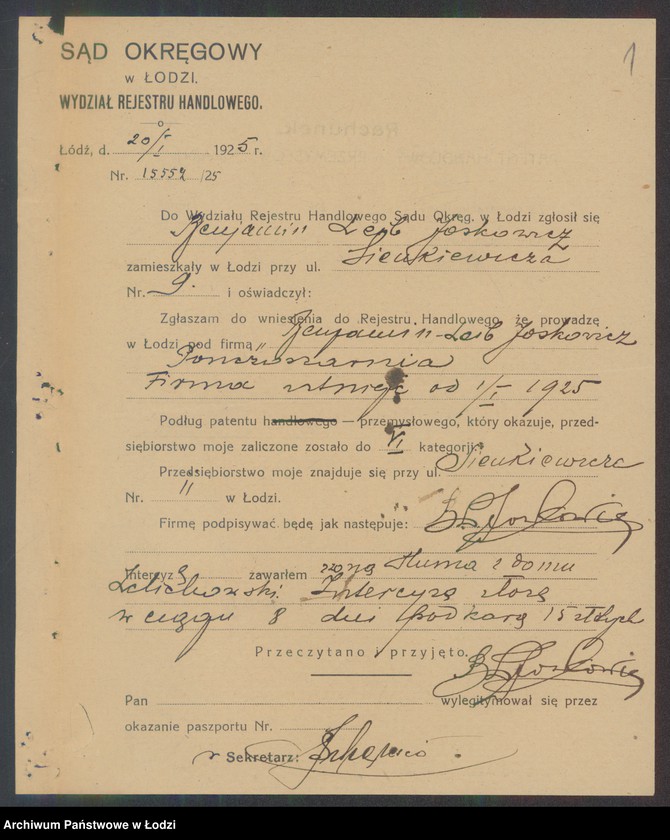 1
SĄD OKRĘGOWY
w ŁODZI.
WYDZIAŁ REJESTRU HANDLOWEGO.
Łódź, d. 20/I 1925 r.
Nr. 15557 /25
Do Wydziału Rejestru Handlowego Sądu Okręg. w Łodzi zgłosił się
Benjamin Lejb Joskowicz
zamieszkały w Łodzi przy ul. Sienkiewicza
Nr. 9. i oświadczył:
Zgłaszam do wniesienia do Rejestru Handlowego, że prowadzę
w Łodzi pod firmą „Benjamin-Lejb Joskowicz
Pończoszarnia
Firma istnieje od 1/I 1925
Podług patentu handlowego — przemysłowego, który okazuje, przed-
siębiorstwo moje zaliczone zostało do VI kategorji.
Przedsiębiorstwo moje znajduje się przy ul. Sienkiewicza
Nr. " w Łodzi.
Firmę podpisywać będę jak następuje: B. L. Joskowicz
Intercyzę zawarłem z żoną z domu
Intercyzę złożę
w ciągu 8 dni pod karą 15 złotych
Przeczytano i przyjęto.
B. L. Joskowicz
Pan wylegitymował się przez
okazanie paszportu Nr.
Sekretarz:
Archiwum Państwowe w Łodzi